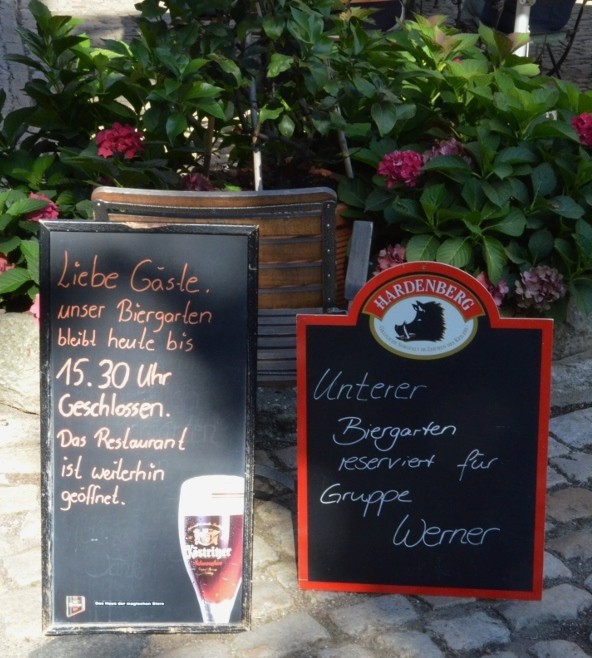 Liebe Gäste.
unser Biergarten
bleibt heute bis
15.30 Uhr
Geschlossen.
Das Restaurant
ist weiterhin
geöffnet.
Köstritzer
Das Haus der magischen Biere
HARDENBERG
Unterer
Biergarten
reserviert für
Gruppe
Werner